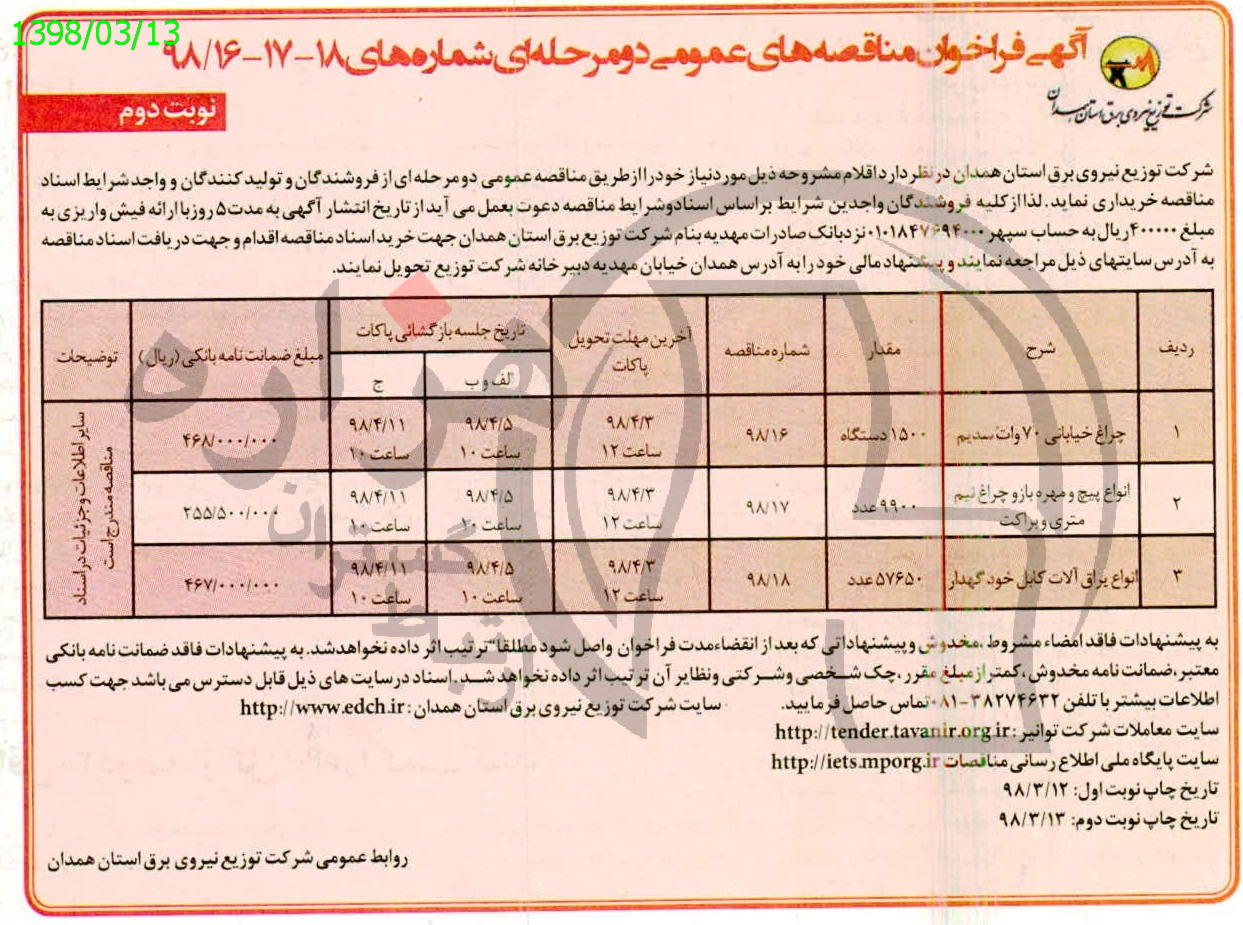 1398/03/13
آگهی فراخوان مناقصه های عمومی دومرحله ای شماره های ۱۸-۱۷-۹۸/۱۶
شرکت توزیع نیروی برق استان همدان
نوبت دوم
شرکت توزیع نیروی برق استان همدان در نظر دارد اقلام مشروحه ذیل مورد نیاز خود را از طریق مناقصه عمومی دو مرحله ای از فروشندگان و تولید کنندگان و واجد شرایط اسناد
مناقصه خریداری نماید. لذا از کلیه فروشندگان واجدین شرایط بر اساس اسناد و شرایط مناقصه دعوت بعمل می آید از تاریخ انتشار آگهی به مدت ۵ روز با ارائه فیش واریزی به
مبلغ ۴۰۰۰۰۰ ریال به حساب سپهر ۰۱۰۱۸۴۷۶۹۴۰۰۰ نزد بانک صادرات مهدیه بنام شرکت توزیع برق استان همدان جهت خرید اسناد مناقصه اقدام و جهت دریافت اسناد مناقصه
به آدرس سایتهای ذیل مراجعه نمایند و پیشنهاد مالی خود را به آدرس همدان خیابان مهدیه دبیر خانه شرکت توزیع تحویل نمایند.
ردیف شرح مقدار شماره مناقصه آخرین مهلت تحویل پاکات تاریخ جلسه بازگشائی پاکات مبلغ ضمانت نامه بانکی (ریال) توضیحات
الف و ب ج
۱ چراغ خیابانی ۷۰ وات سدیم ۱۵۰۰ دستگاه ۹۸/۱۶ ۹۸/۴/۳ ساعت ۱۲ ۹۸/۴/۵ ساعت ۱۰ ۹۸/۴/۱۱ ساعت ۱۰ ۴۶۸/۰۰۰/۰۰۰
۲ انواع پیچ و مهره بازو چراغ نیم متری و یراکت ۹۹۰۰ عدد ۹۸/۱۷ ۹۸/۴/۳ ساعت ۱۲ ۹۸/۴/۵ ساعت ۱۰ ۹۸/۴/۱۱ ساعت ۱۰ ۲۵۵/۵۰۰/۰۰۰
۳ انواع یراق آلات کابل خود گهدار ۵۷۶۵۰ عدد ۹۸/۱۸ ۹۸/۴/۳ ساعت ۱۲ ۹۸/۴/۵ ساعت ۱۰ ۹۸/۴/۱۱ ساعت ۱۰ ۴۶۷/۰۰۰/۰۰۰
سایر اطلاعات و جزئیات در اسناد
مناقصه مندرج است
به پیشنهادات فاقد امضاء مشروط ،مخدوش و پیشنهاداتی که بعد از انقضاء مدت فراخوان واصل شود مطلقا" ترتیب اثر داده نخواهد شد. به پیشنهادات فاقد ضمانت نامه بانکی
معتبر،ضمانت نامه مخدوش ،کمتر از مبلغ مقرر ،چک شخصی وشرکتی ونظایر آن ترتیب اثر داده نخواهد شد .اسناد در سایت های ذیل قابل دسترس می باشد جهت کسب
اطلاعات بیشتر با تلفن ۳۸۲۷۴۶۳۲-۰۸۱ تماس حاصل فرمایید. سایت شرکت توزیع نیروی برق استان همدان : http://www.edch.ir
سایت معاملات شرکت توانیر : http://tender.tavanir.org.ir
سایت پایگاه ملی اطلاع رسانی مناقصات http://iets.mporg.ir
تاریخ چاپ نوبت اول: ۹۸/۳/۱۲
تاریخ چاپ نوبت دوم: ۹۸/۳/۱۳
روابط عمومی شرکت توزیع نیروی برق استان همدان
هزاره
گستران
ارتباط